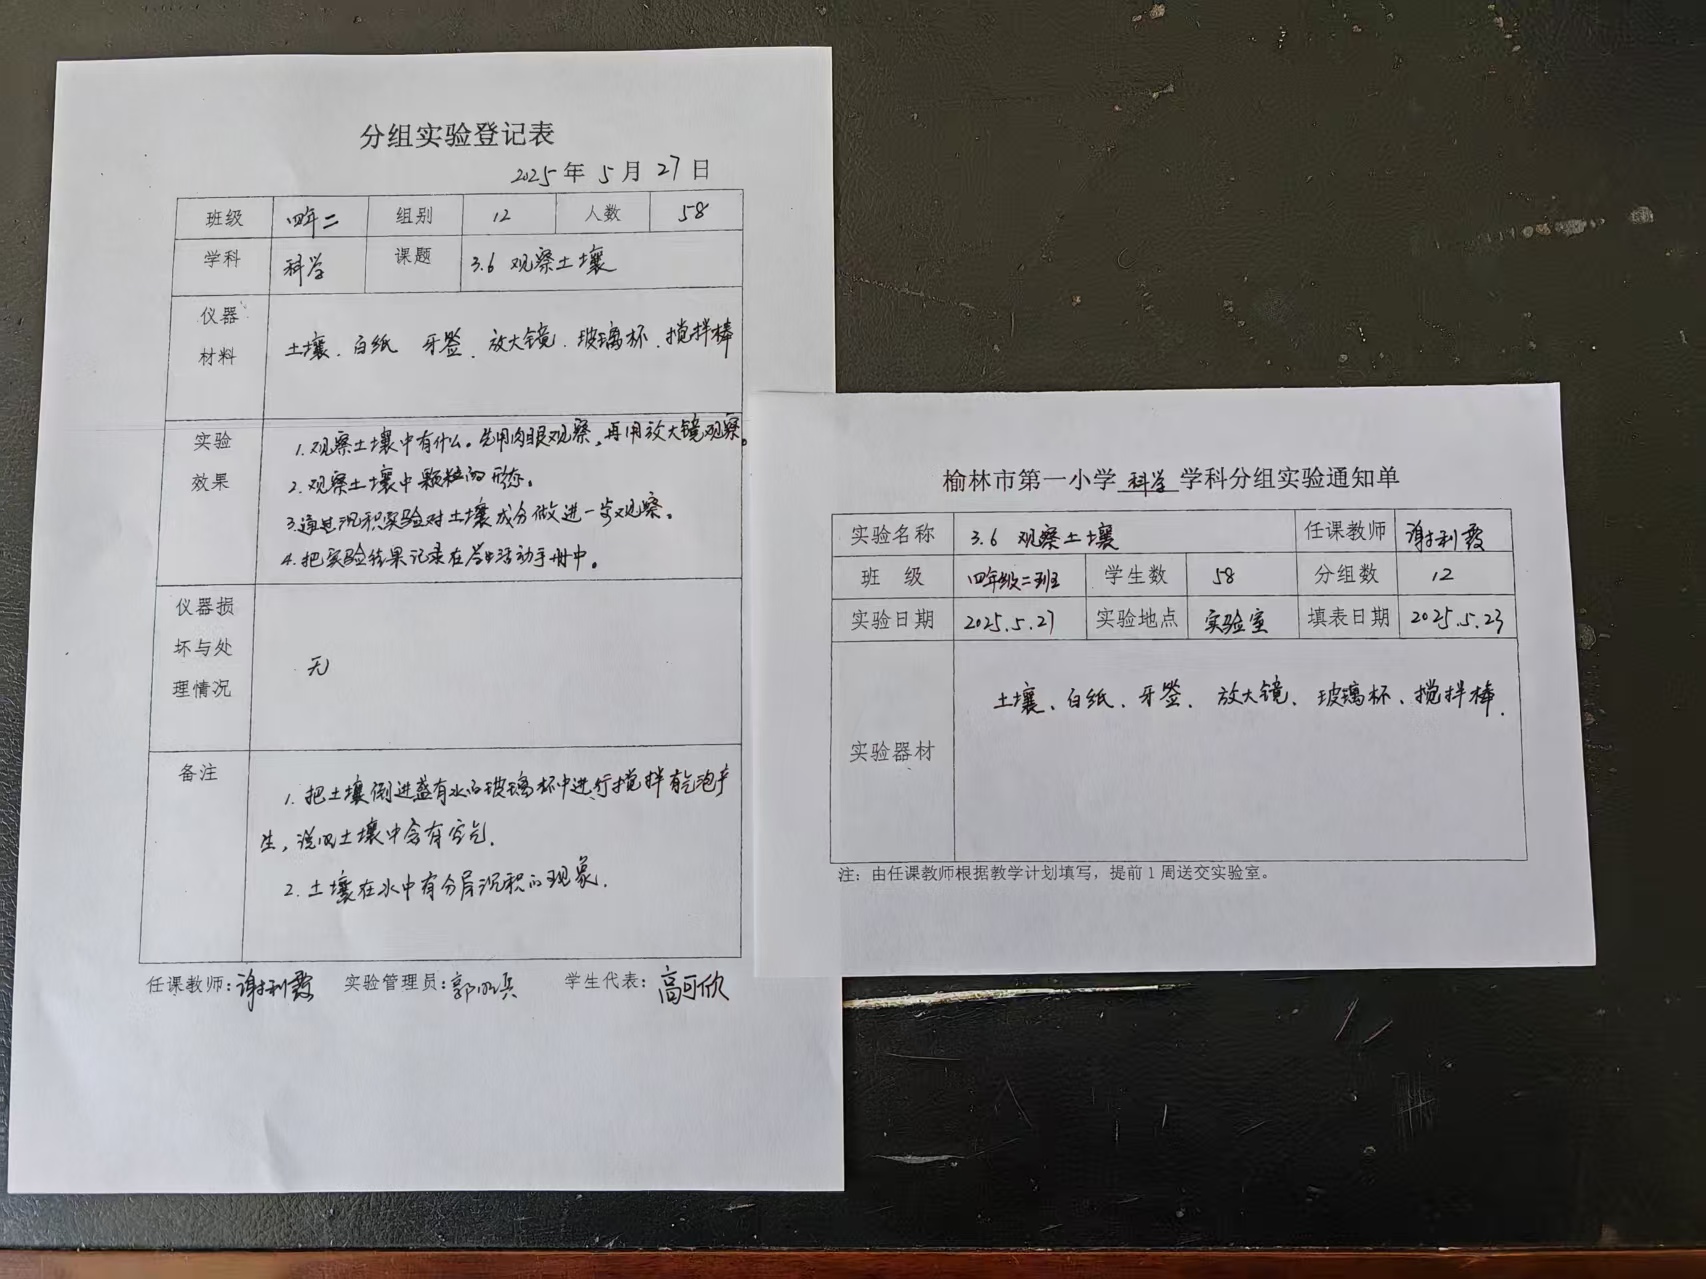 分组实验登记表
2025年 5月 27日
班级 四年二 组别 12 人数 58
学科 科学 课题 3.6 观察土壤
仪器
材料
土壤、白纸 牙签、放大镜、玻璃杯、搅拌棒
实验
效果
1.观察土壤中有什么。先用肉眼观察,再用放大镜观察。
2.观察土壤中颗粒的形态。
3.通过沉积实验对土壤成分做进一步观察。
4.把实验结果记录在学生活动手册中。
仪器损
坏与处
理情况
无
备注
1.把土壤倒进盛有水的玻璃杯中进行搅拌有气泡产
生,说明土壤中含有空气.
2.土壤在水中有分层沉积的现象.
任课教师:谢利霞 实验管理员:郭 兵 学生代表:高可欣
榆林市第一小学 科学 学科分组实验通知单
实验名称 3.6 观察土壤 任课教师 谢利霞
班 级 四年级二班 学生数 58 分组数 12
实验日期 2025.5.27 实验地点 实验室 填表日期 2025.5.23
实验器材
土壤、白纸、牙签、放大镜、玻璃杯、搅拌棒.
注:由任课教师根据教学计划填写,提前1周送交实验室。